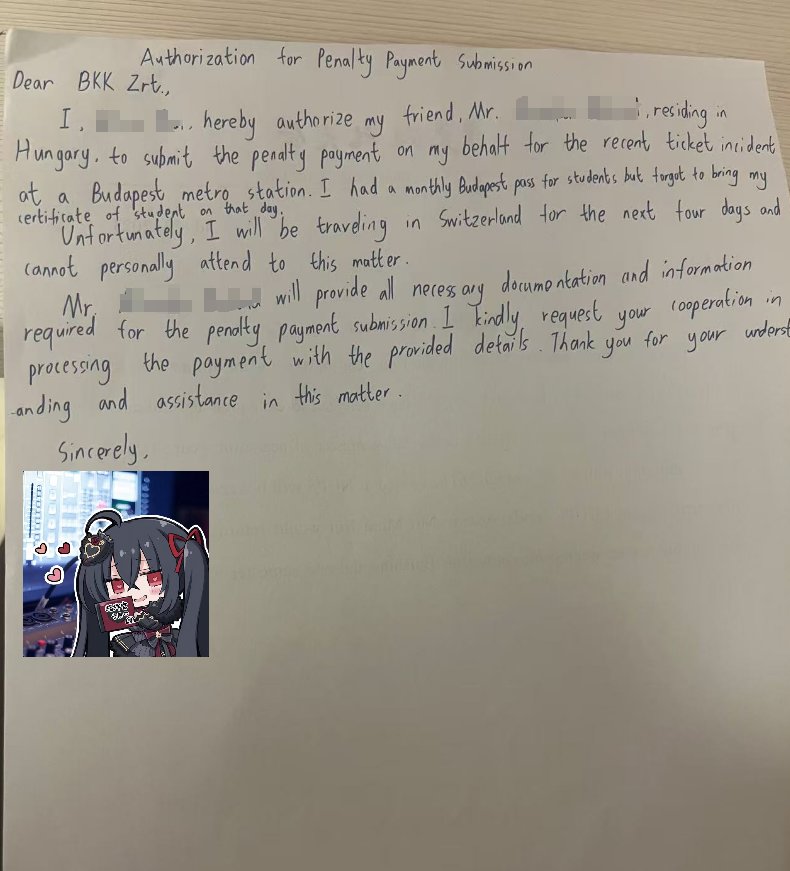 Authorization for Penalty Payment Submission
Dear BKK Zrt.,
I, hereby authorize my friend, Mr. , residing in
Hungary, to submit the penalty payment on my behalf for the recent ticket incident
at a Budapest metro station. I had a monthly Budapest pass for students but forgot to bring my
certificate of student on that day.
Unfortunately, I will be traveling in Switzerland for the next four days and
cannot personally attend to this matter.
Mr. will provide all necessary documentation and information
required for the penalty payment submission. I kindly request your cooperation in
processing the payment with the provided details. Thank you for your underst
-anding and assistance in this matter.
Sincerely,